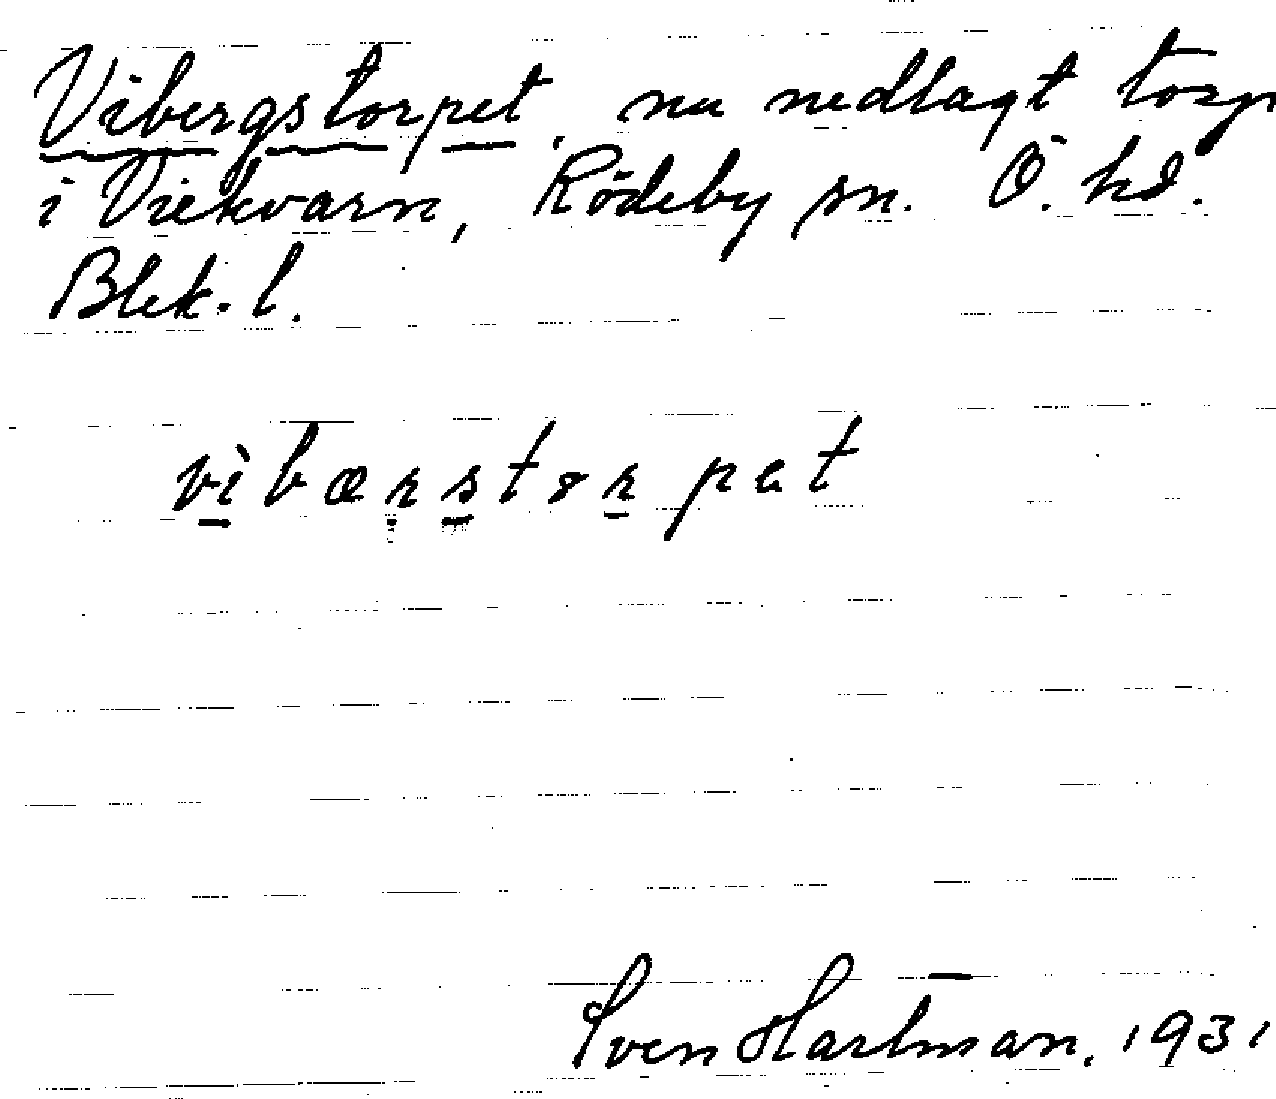 Vibergstorpet, nu nedlagt torp
i Viekvarn, Rödeby sn. Ö. hd.
Blek. l.
vìbærstorpet
Sven Hartman. 1931